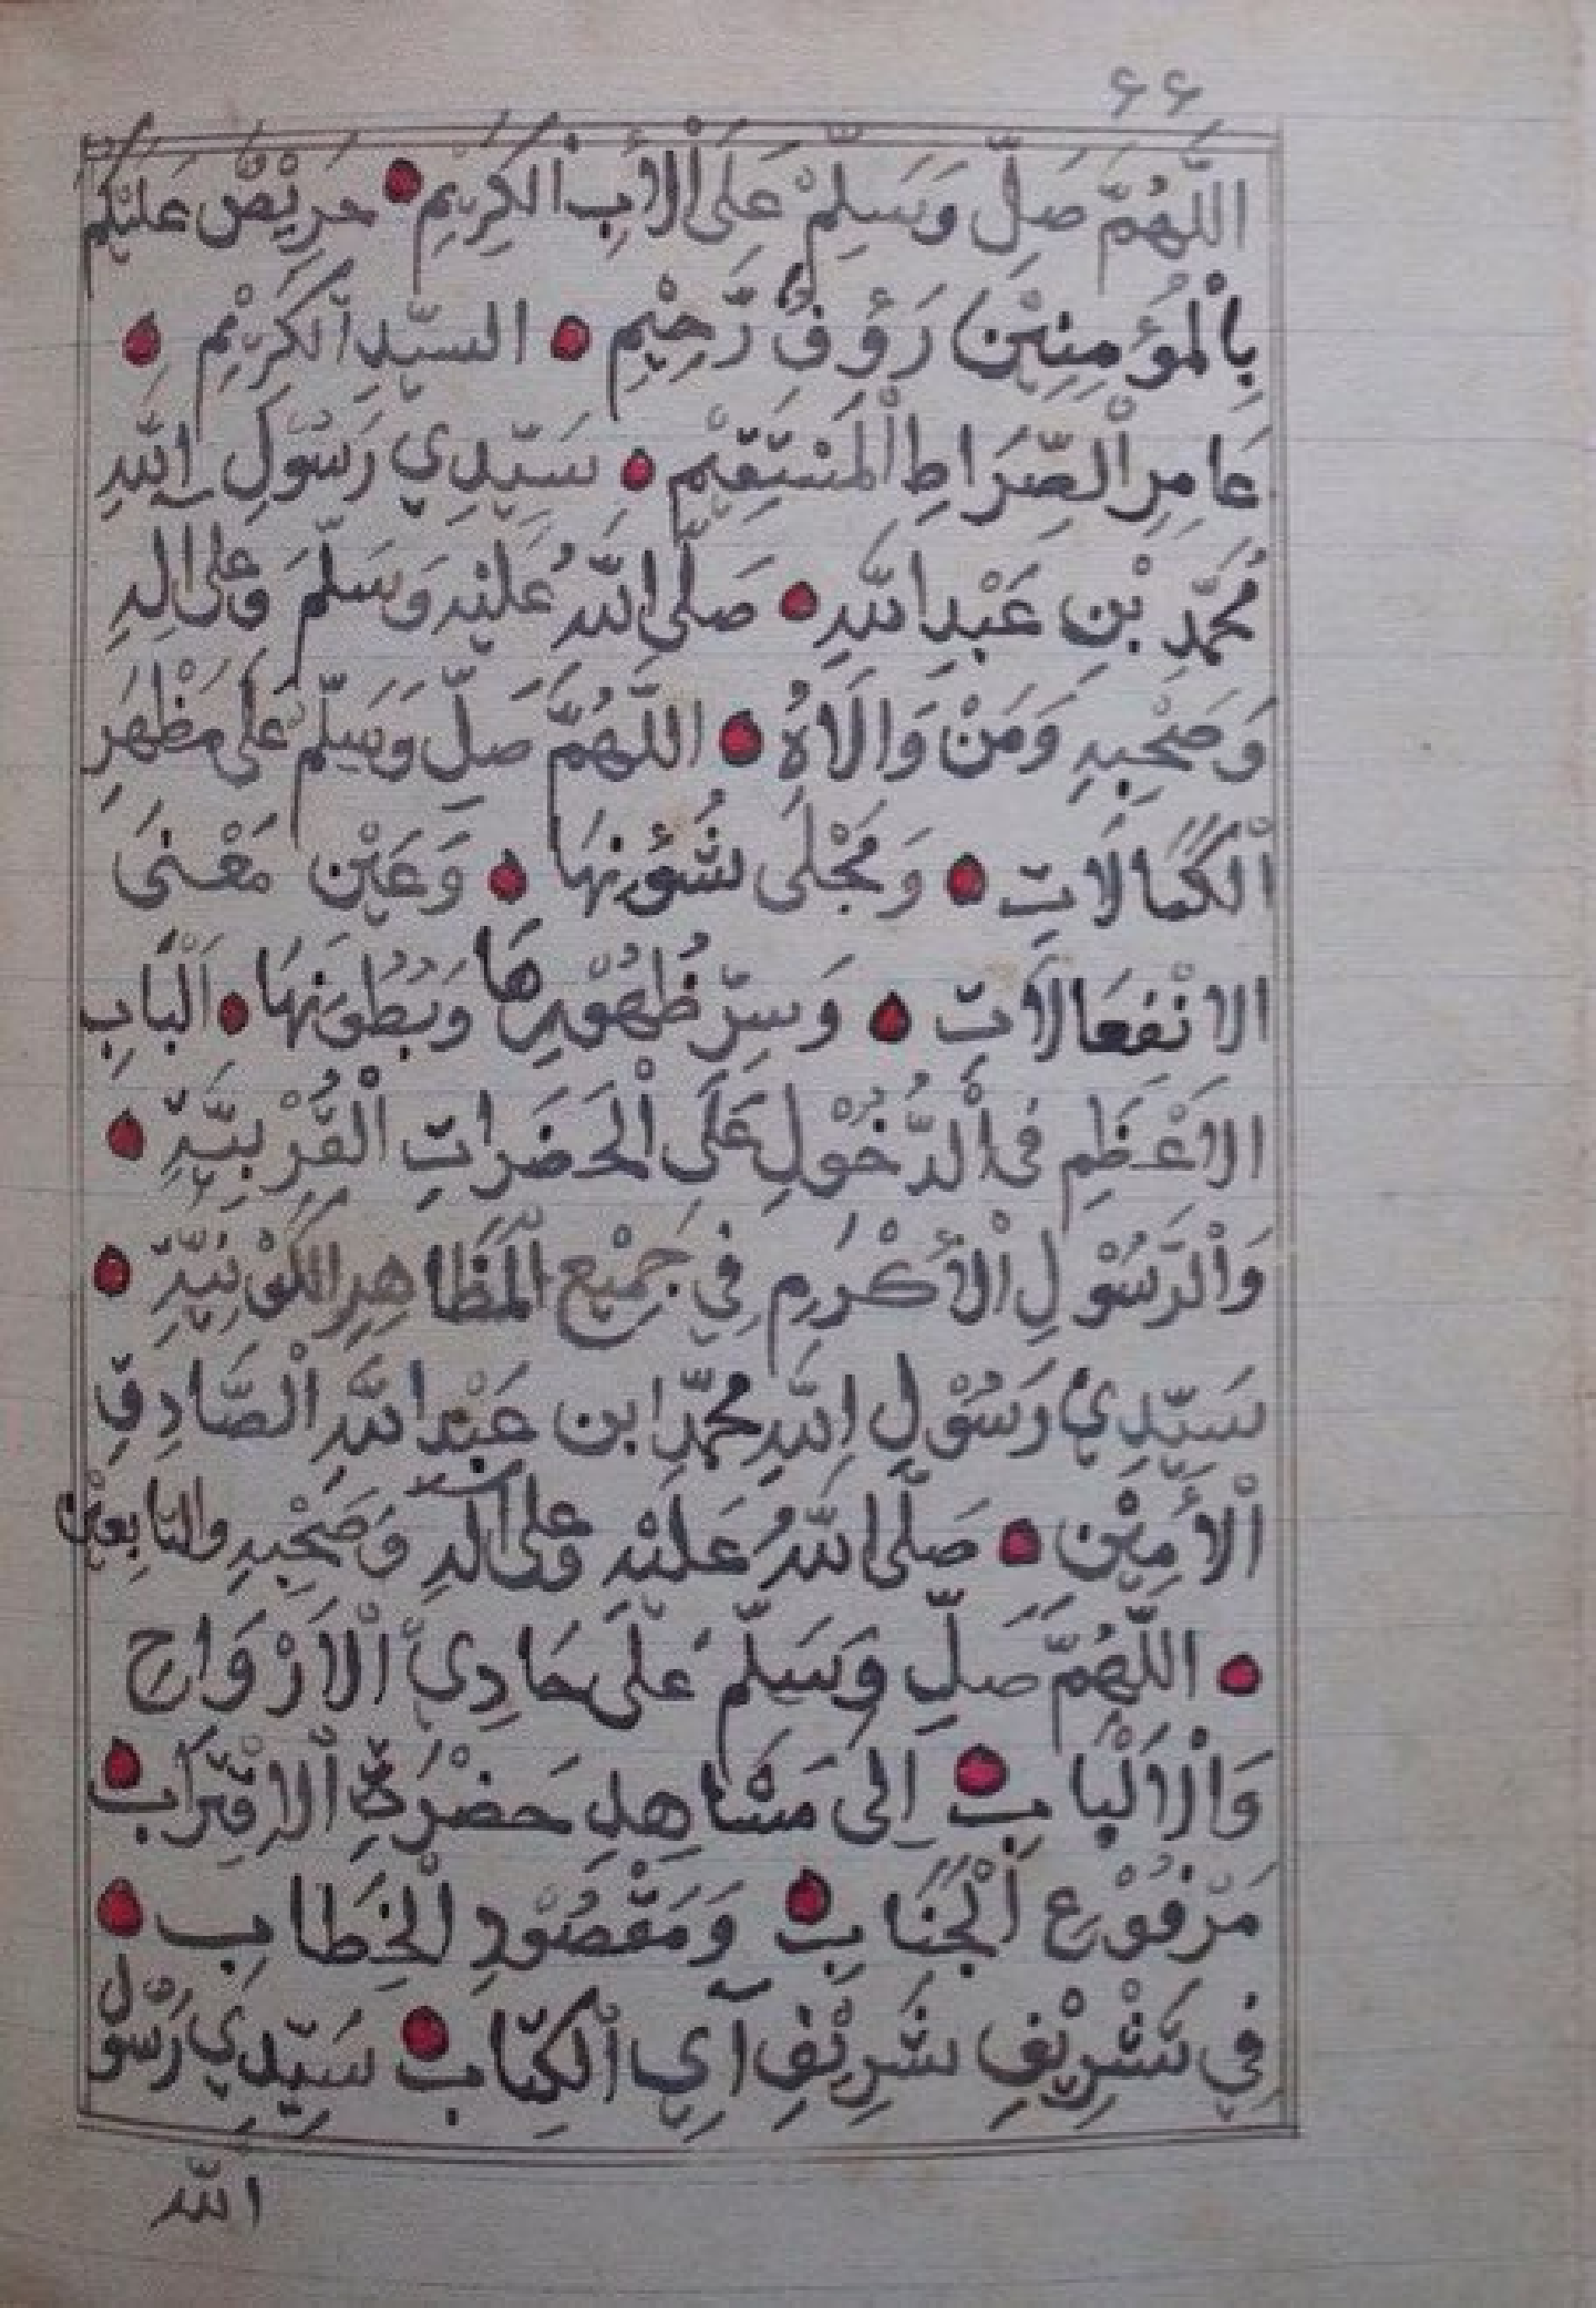 ٦٦
اللّٰهُمَّ صَلِّ وَسَلِّمْ عَلَى الْأَبِ الْكَرِيْمِ حَرِيْصٌ عَلَيْكُمْ
بِالْمُؤْمِنِيْنَ رَؤُوفٌ رَّحِيْمٌ السَّيِّدِ الْكَرِيْمِ
عَامِرِ الصِّرَاطِ الْمُسْتَقِيْمِ سَيِّدِي رَسُوْلِ اللّٰهِ
مُحَمَّدِ بْنِ عَبْدِ اللّٰهِ صَلَّى اللّٰهُ عَلَيْهِ وَسَلَّمَ وَعَلَى آلِهِ
وَصَحْبِهِ وَمَنْ وَالَاهُ اللّٰهُمَّ صَلِّ وَسَلِّمْ عَلَى مَظْهَرِ
الْكَمَالَاتِ وَمَجْلَى شُؤُنِهَا وَعَيْنِ مَعْنَى
الانْفِعَالَاتِ وَسِرِّ ظُهُوْرِهَا وَبُطُوْنِهَا اَلْبَابِ
الاَعْظَمِ فِى الدُّخُوْلِ عَلَى الْحَضَرَاتِ الْقُرْبِيَّةِ
وَالرَّسُوْلِ الْأَكْرَمِ فِي جَمِيْعِ الْمَظَاهِرِ الْكَوْنِيَّةِ
سَيِّدِي رَسُوْلِ اللّٰهِ مُحَمَّدِ ابن عَبْدِ اللّٰهِ الْصَّادِقِ
الْأَمِيْنِ صَلَّى اللّٰهُ عَلَيْهِ وَعَلَى آلِهِ وَصَحْبِهِ والتابِعِيْن
اللّٰهُمَّ صَلِّ وَسَلِّمْ عَلَى حَادِيْ الْاَرْوَاحِ
وَالْاَلْبَابِ اِلى مَشَاهِدِ حَضْرَةِ الْاِقْتِرَابِ
مَرْفُوْعِ الْجَنَابِ وَمَقْصُوْدِ الْخِطَابِ
فِي تَشْرِيْفِ شَرِيْفِ آيِ الْكِتَابِ سَيِّدِي رَسُوْلِ
اللّٰه